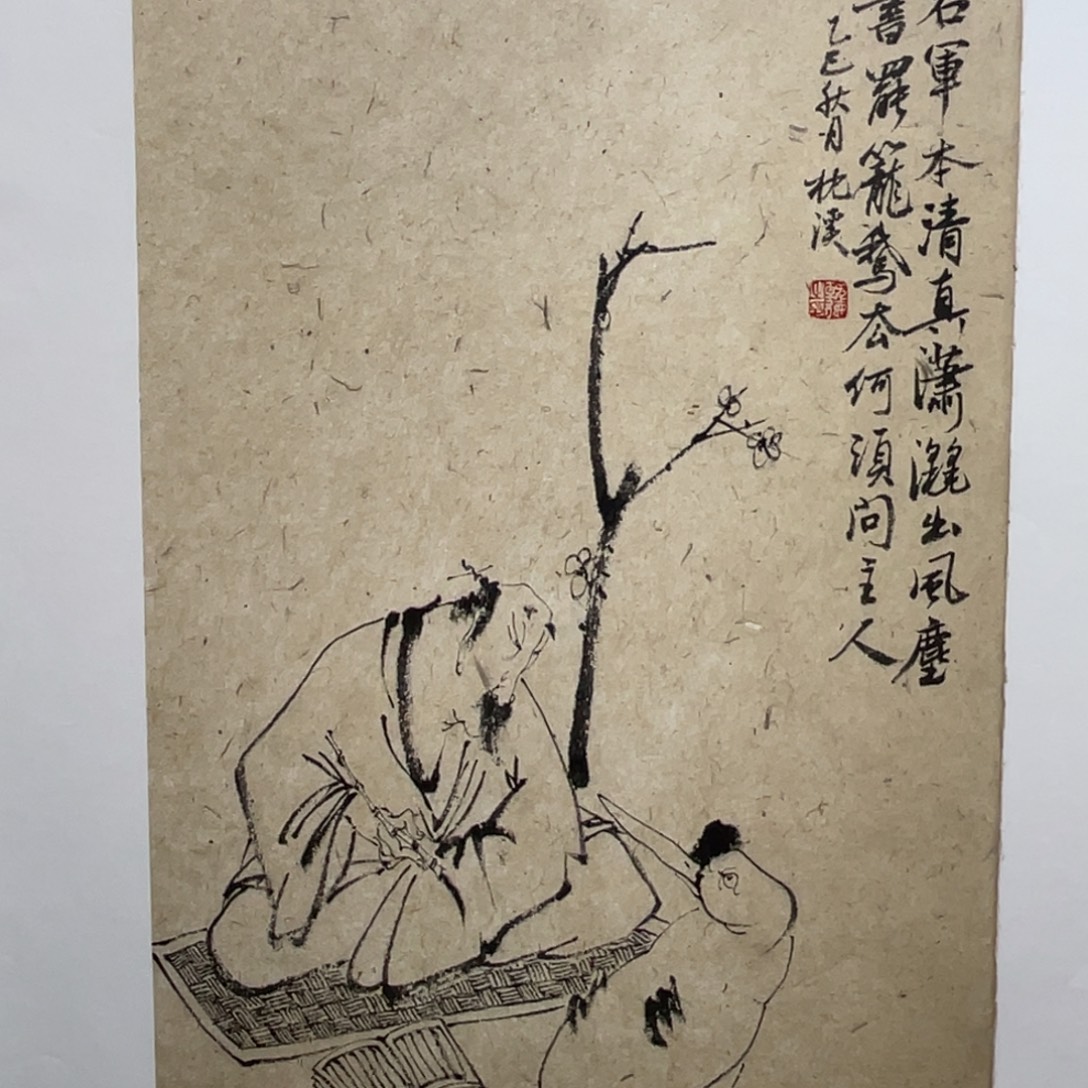 右軍本清真瀟灑出風塵
書罷籠鵞去何須問主人
乙巳秋月枕溪